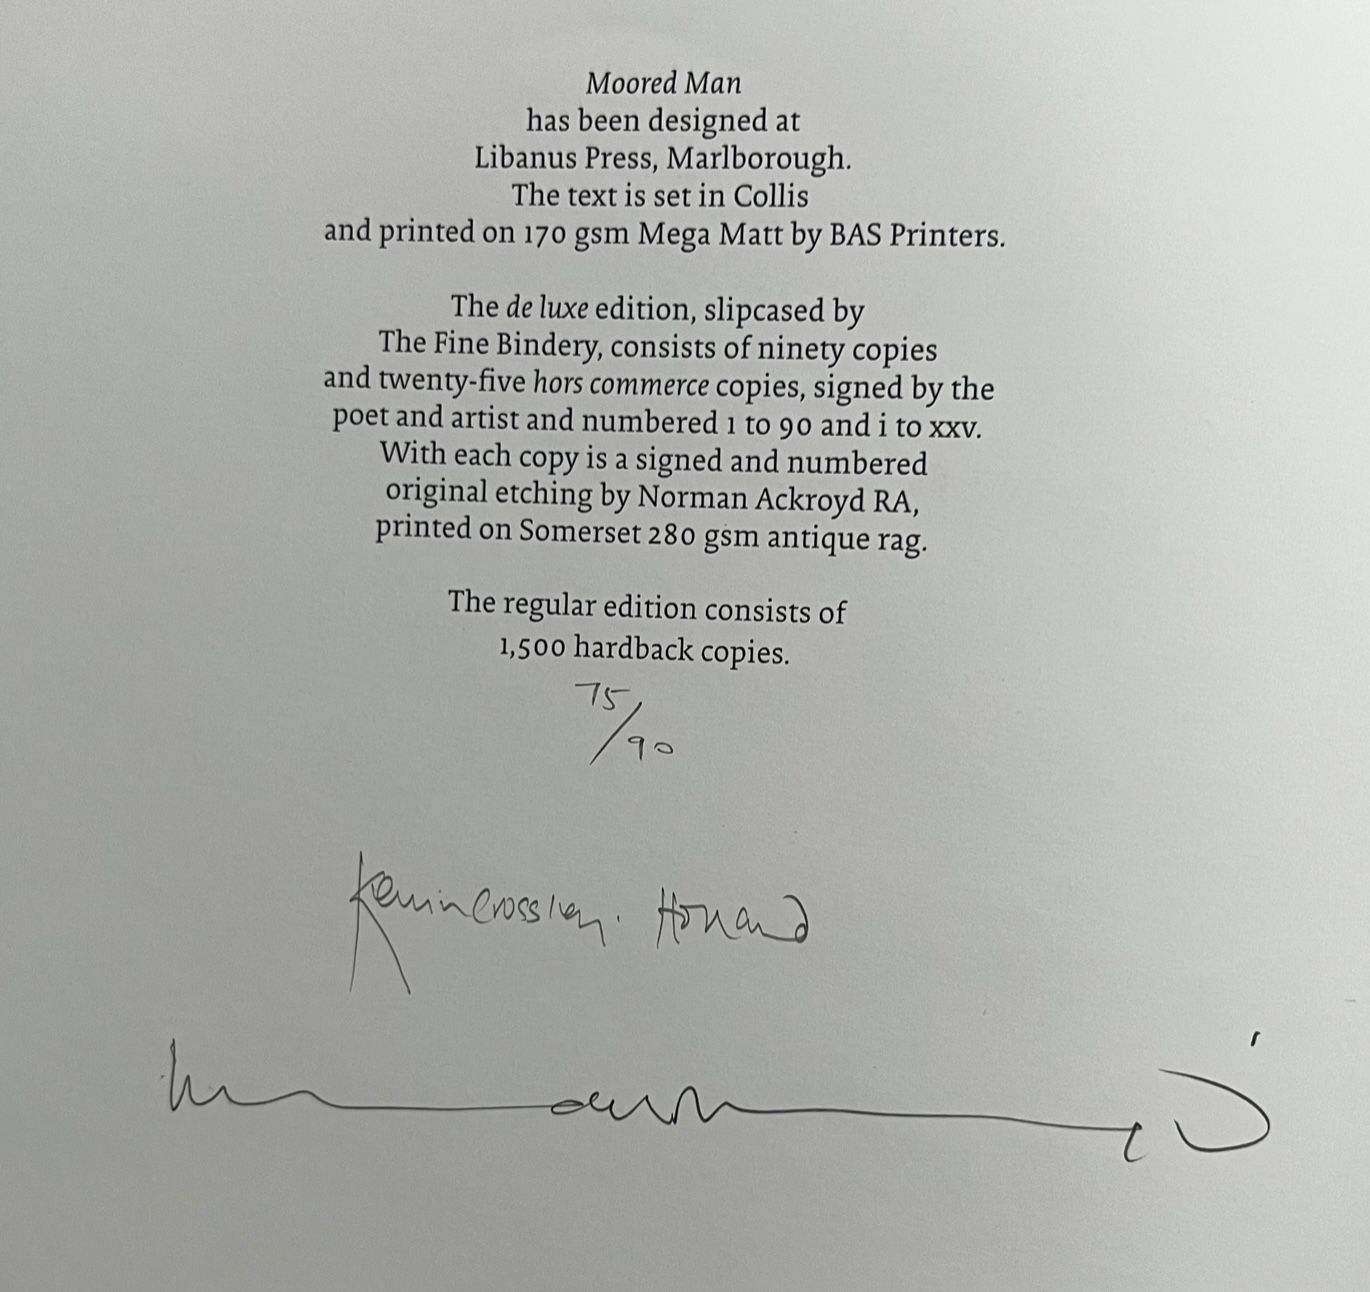 Moored Man
has been designed at
Libanus Press, Marlborough.
The text is set in Collis
and printed on 170 gsm Mega Matt by BAS Printers.
The de luxe edition, slipcased by
The Fine Bindery, consists of ninety copies
and twenty-five hors commerce copies, signed by the
poet and artist and numbered 1 to 90 and i to xxv.
With each copy is a signed and numbered
original etching by Norman Ackroyd RA,
printed on Somerset 280 gsm antique rag.
The regular edition consists of
1,500 hardback copies.
75/90
Kevin Crossley-Holland